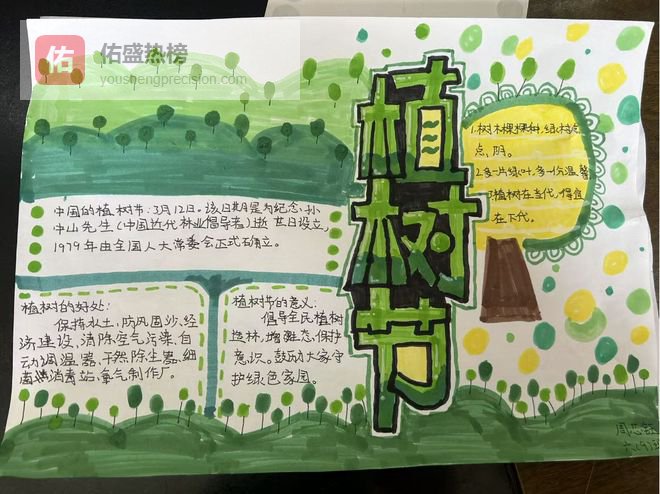 佑
佑盛热榜
youshengprecision.com
植
树
节
中国的植树节:3月12日。该日期是为纪念孙
中山先生(中国近代林业倡导者)逝世日设立,
1979年由全国人大常委会正式确立。
植树的好处:
保持水土、防风固沙、经
济建设、清除空气污染、自
动调温器、天然除尘器、细
菌消毒站、氧气制作厂。
植树节的意义:
倡导全民植树
造林,增 态、保护
意识。鼓励大家守
护绿色家园。
1.树木棵棵树,绿
点、阴。
2.多一片绿叶,多一份温馨
植树在当代,得宜
在下代。
周芯
六(9)班